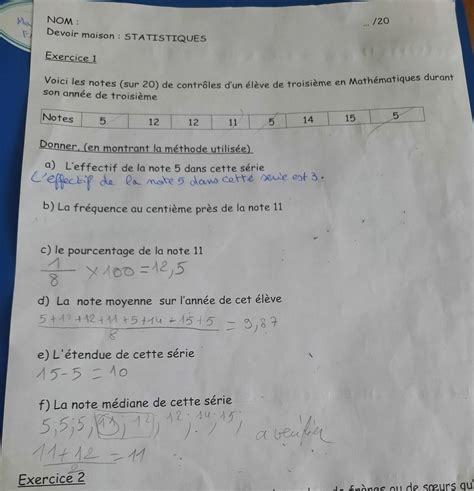 NOM :
../20
Devoir maison : STATISTIQUES
Exercice 1
Voici les notes (sur 20) de contrôles d'un élève de troisième en Mathématiques durant
son année de troisième
Notes 5 12 12 11 5 14 15 5
Donner, (en montrant la méthode utilisée)
a) L'effectif de la note 5 dans cette série
L'effectif de la note 5 dans cette série est 3.
b) La fréquence au centième près de la note 11
c) le pourcentage de la note 11
1/8 × 100 = 12,5
d) La note moyenne sur l'année de cet élève
5+12+12+11+5+14+15+5
8
= 9,87
e) L'étendue de cette série
15-5 = 10
f) La note médiane de cette série
5,5,5,11,12,12,14,15,
a vérifier
11+12
= 11
Exercice 2
frères ou de sœurs qu